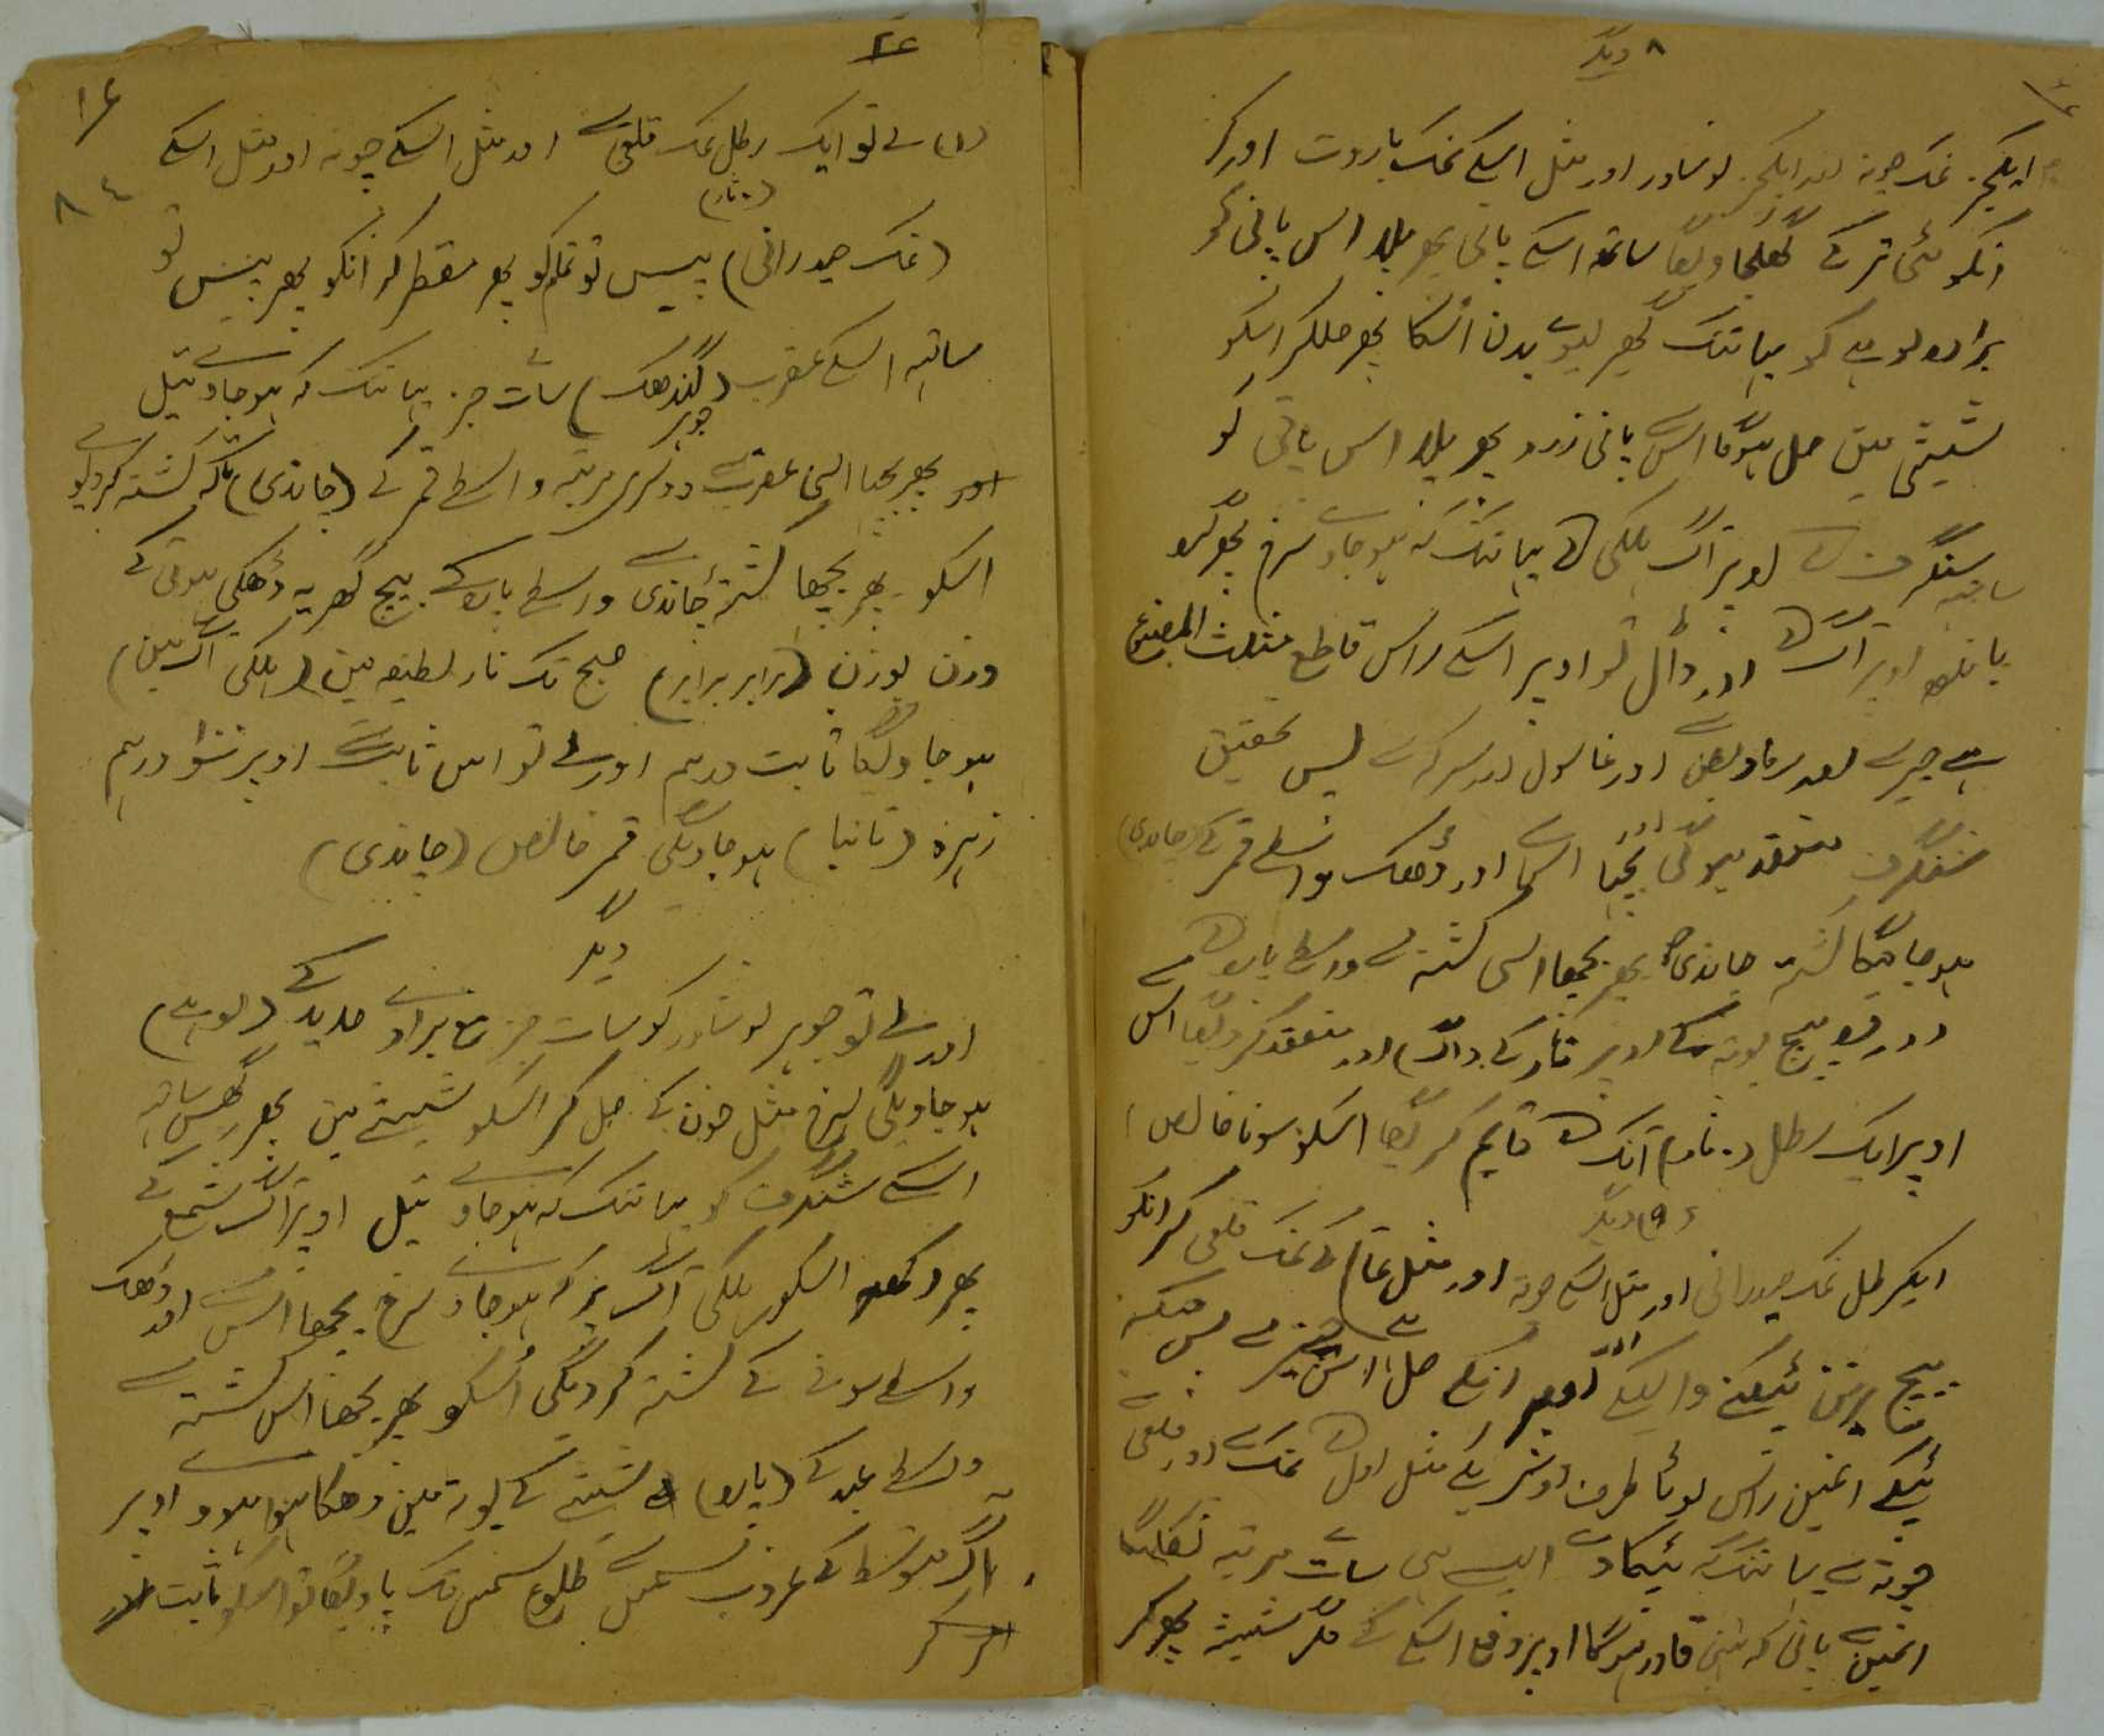 ۸ دیگر
ایکجز نمک چونہ اور ایکجز نوشادر اور مثل اسکے نمک باروت اور کر
انکو مٹی تر کے گھلجاویگا ساتھ اسکے پانی پھر پلا اس پانی کو
برادہ لوہے کو یہانتک گھر لیوے بدن اسکا پھر حلکر اسکو
شیشی میں حل ہوگا اس سے پانی زرد پھر پلا اس پانی کو
ساتھ سنگرف کے اوپر آگ ہلکی کے یہانتک کہ ہوجاوے سرخ پھر کرو
باندھ اوپر آگ کے اور ڈال تو اوپر اسکے راس قاطع مثلث المصنوع
ہے جیرے اور رماد بیض اور غاسول اور سرکہ سے پس تحقیق
شنگرف منعقد ہوگی بجھا اسکو اور ڈھک واسطے قمر کے (چاندی)
ہوجائیگا کشتہ چاندی پھر بجھا اسی کشتہ سے واسطے پارہ کے
اور بیچ بوتہ کے اوپر نار کے داگ اور منعقد کردیگا اس
اوپر ایک رطل آنک کے قایم کریگا اسکو سونا خالص
(۹) دیگر
ایکرطل نمک حیدرانی اور مثل اسکے چونہ اور مثل تمام کے نمک قلعی کر انکو
بیچ برتن ٹپکنے والیکے اوپر انکے حل اس چیز سے پس
ٹپکے انمیں راس لوٹا طرف اوشریکے مثل اول کے نمک اور قلعی
چونہ سے یہانتک کہ ٹپکاوے ایسے ہی سات مرتبہ نکلیگا
انمیں پانی کہ نہیں قادر ہوگا اوپر دفع اسکے کے مگر شیشہ پھر کر
۲۶
۱۶
۸۴
(۱) لے تو ایک رطل نمک قلعی سے اور مثل اسکے چونہ اور مثل اسکے
(نمک حیدرانی) پیس تو تمام کو پھر مقطر کر انکو پھر پیس تو
ساتہہ اسکے عقرب (گندھک) سات جز یہانتک کہ ہوجاوے تیل
اور پھر بجھا اسی عقرب سے دوسری مرتبہ واسطے قمر کے (چاندی) تاکہ کشتہ کردیوے
اسکو پھر بجھا کشتہ چاندی سے واسطے پارہ کے بیچ گھریہ ڈھکی ہوئی کے
وزن بوزن (برابر برابر) صبح تک نار لطیفہ میں (ہلکی آگ میں)
ہوجاویگا ثابت درہم اور لے تو اس ثابت سے اوپر سو درہم
زہرہ (تانبا) ہوجاویگی قمر خالص (چاندی)
دیگر
اور لے تو جوہر نوشادر کو سات جز مع برادے حدید کے (لوہے)
ہوجاویگی سرخ مثل خون کے حل کر اسکو شیشے میں پھر گھس ساتہہ
اسکے شنگرف کو یہانتک کہ ہوجاوے تیل اوپر آگ شمع کے
پھر رکھ اسکو ہلکی آگ پر کہ ہوجاوے سرخ بجھا اس سے اور ڈھک
واسطے سونے کے کشتہ کردیگی اسکو پھر بجھا اس کشتہ سے
واسطے عبد کے (پارہ) شیشے کے بوتہ میں ڈھکا ہوا ہووے اوپر
آگ متوسط کے غروب شمس سے طلوع شمس تک پاویگا تو اسکو ثابت
کر